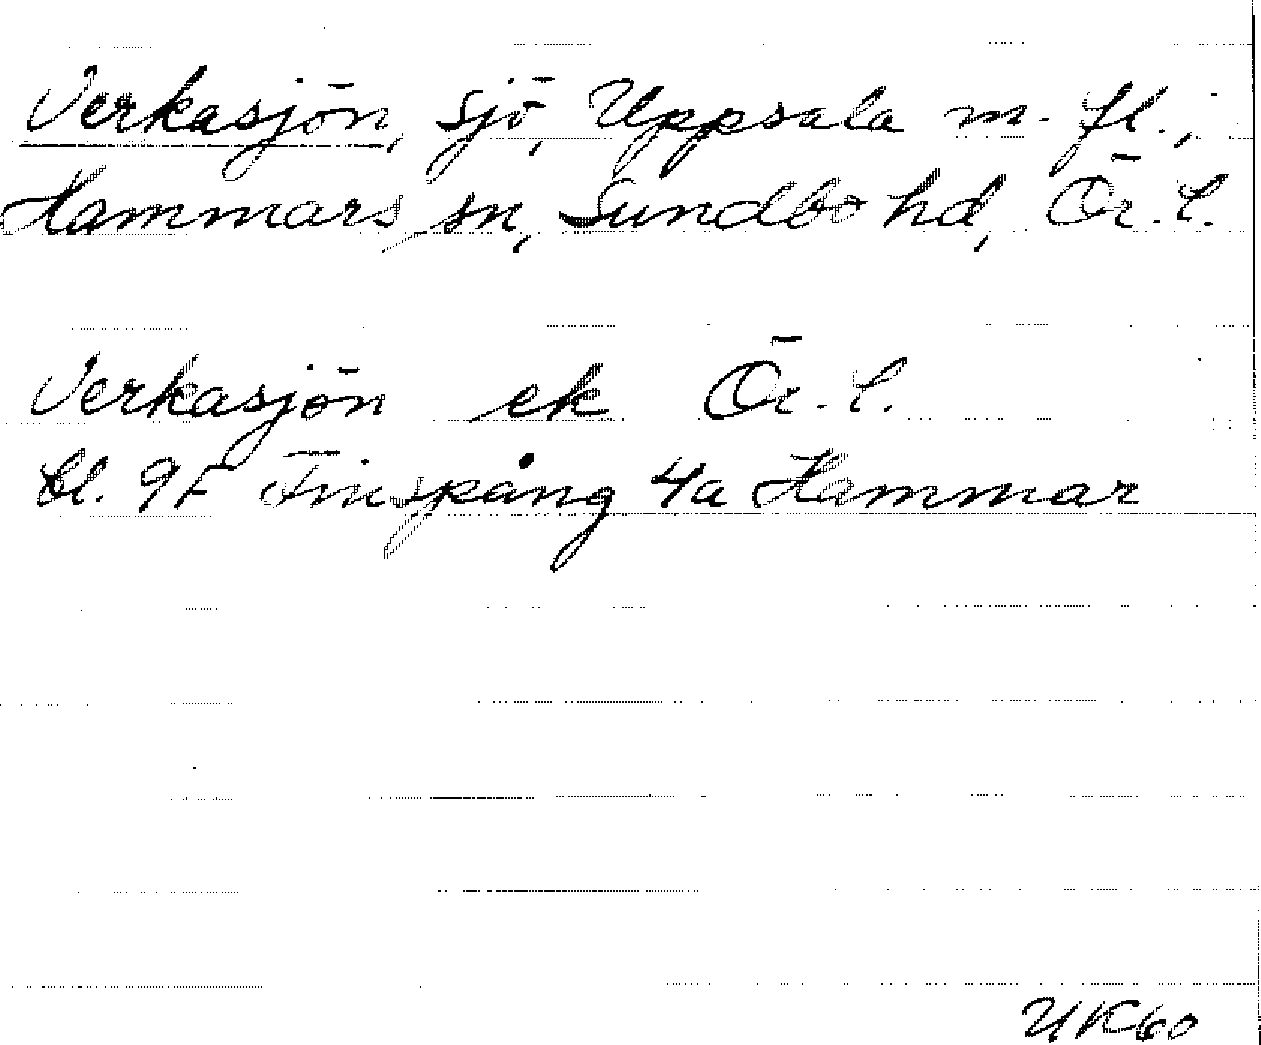 Verkasjön, sjö, Uppsala m. fl.,
Hammars sn, Sundbo hd, Ör. l.
Verkasjön ek Ör. l.
bl. 9F Finspång 4a Hammar
UK60